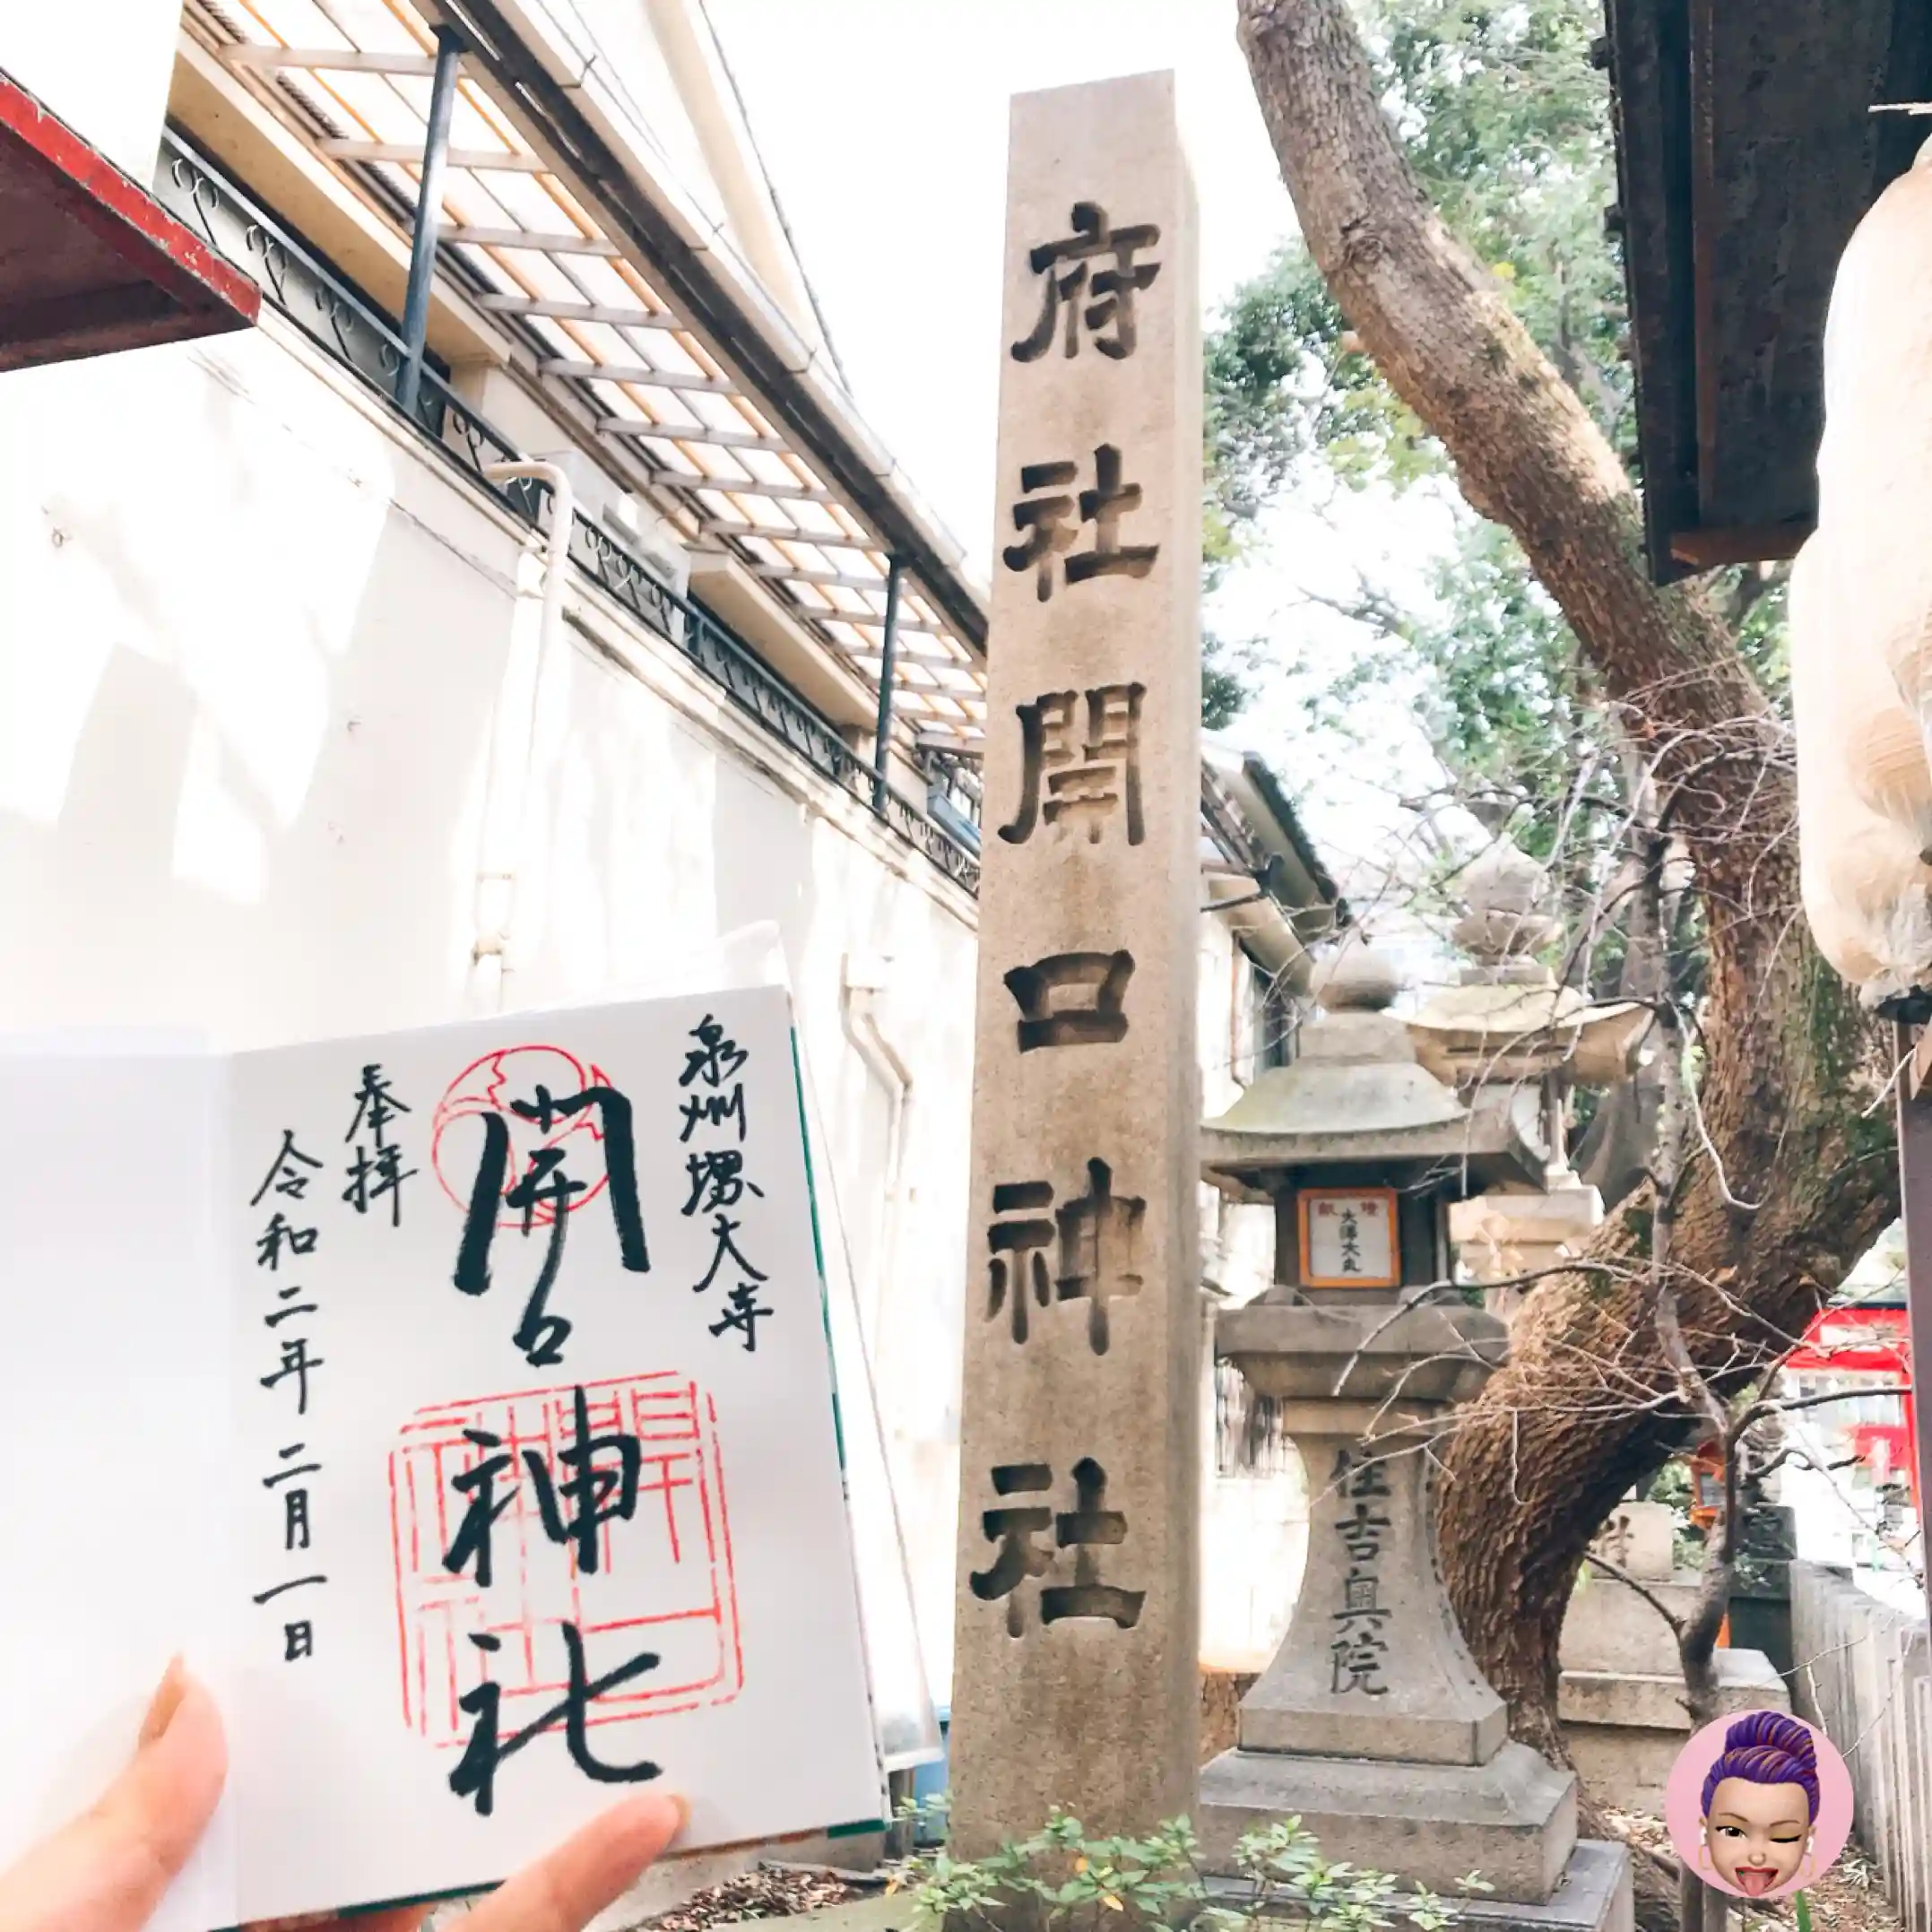 府社開口神社
泉州堺大寺
開口神社
奉拝
令和二年二月一日
開口神社
住吉奥院
献燈